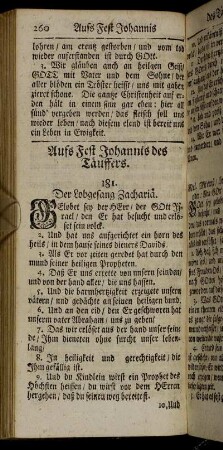 260 Auffs Fest Johannis
lohren / am creutz gestorben / und vom tod
wieder aufferstanden ist durch GOtt.
3. Wir gläuben auch an heilgen Geist /
GOTT mit Vater und dem Sohne / der
aller blöden ein Tröster heist / und mit gaben
zieret schone. Die gantze Christenheit auf er-
den hält in einem sinn gar eben: hier all
sünd vergeben werden / das fleisch soll uns
wieder leben / nach diesem elend ist bereit uns
ein Leben in Ewigkeit.
Auffs Fest Johannis des
Täuffers.
181.
Der Lobgesang Zachariä.
GElobet sey der HErr / der GOtt Js-
rael / den Er hat besucht und erlö-
set sein volck.
2. Und hat uns aufgerichtet ein horn des
heils / in dem hause seines dieners Davids.
3. Als Er vor zeiten geredet hat durch den
mund seiner heiligen Propheten.
4. Daß Er uns errette von unsern feinden /
und von der hand aller / die uns hassen.
5. Und die barmhertzigkeit erzeigte unsern
vätern / und gedächte an seinen heiligen bund.
6. Und an den eid / den Er geschworen hat
unserm vater Abraham / uns zu geben /
7. Das wir erlöset aus der hand unser fein-
de / Ihm dieneten ohne furcht unser leben-
lang /
8. In heiligkeit und gerechtigkeit / die
Ihm gefällig ist.
9. Und du Kindlein wirst ein Prophet des
Höchsten heissen / du wirst vor dem HErren
hergehen / daß du seinen weg bereitest.
10. Und